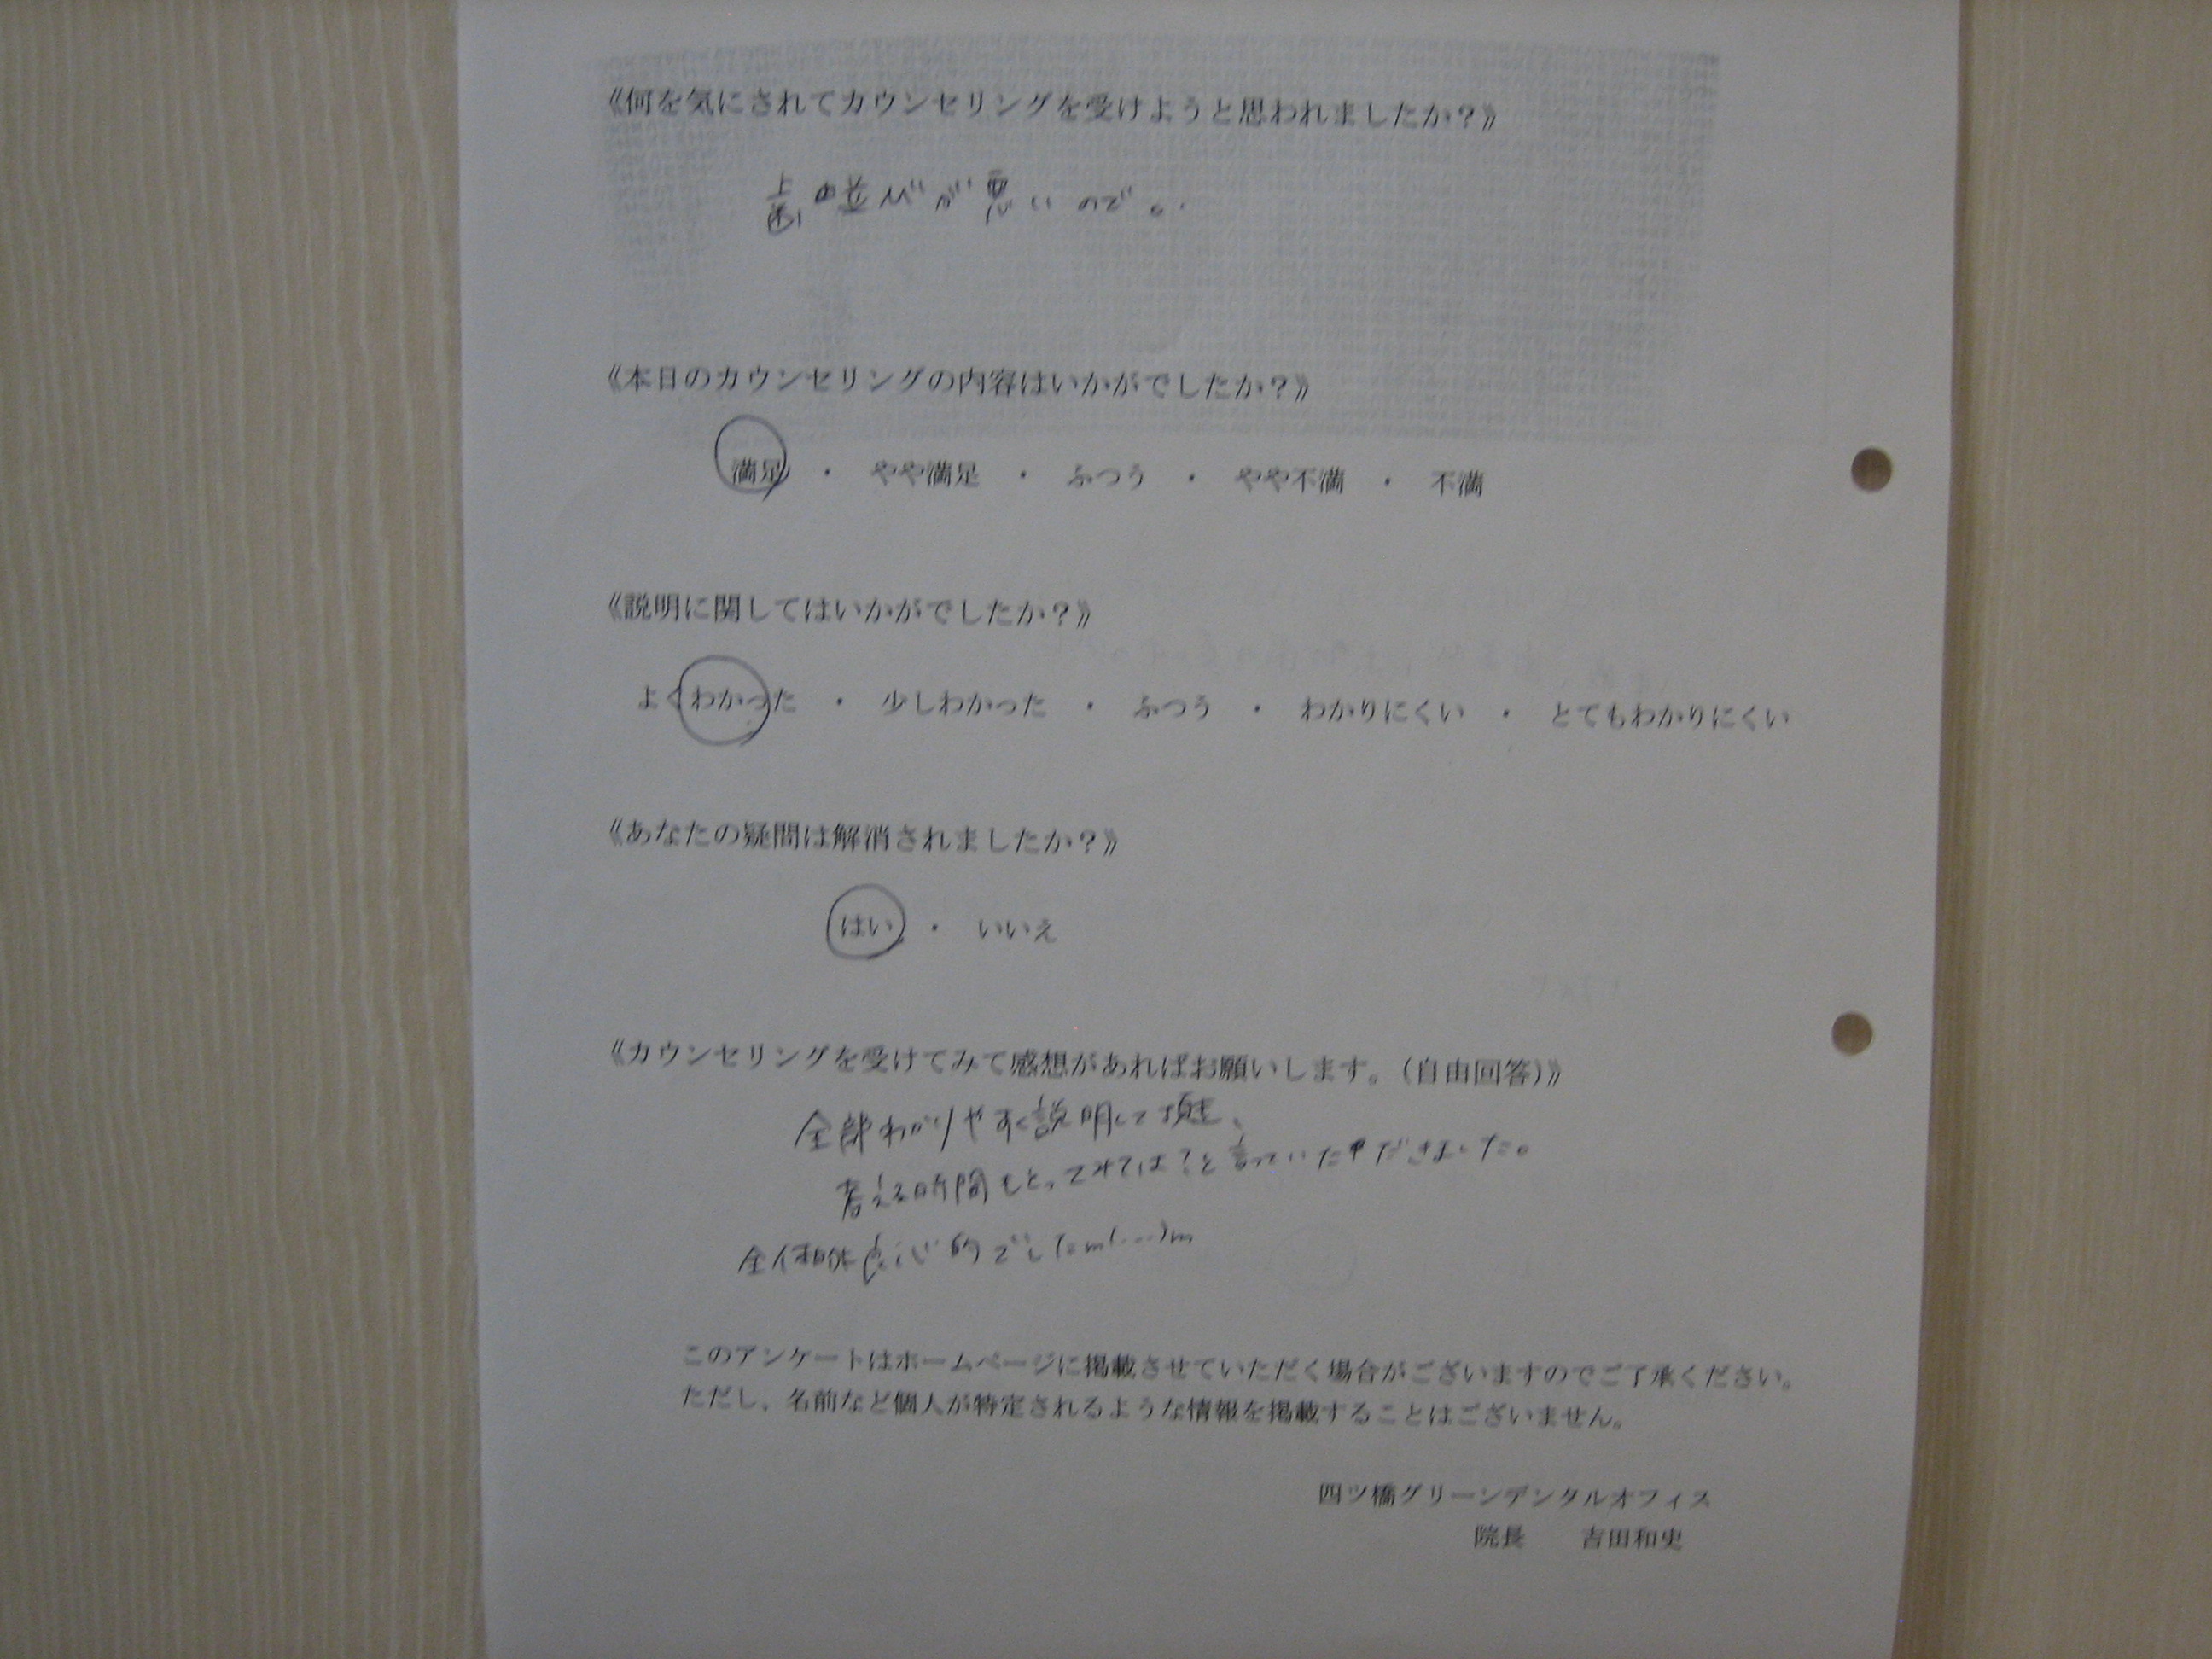 《何を気にされてカウンセリングを受けようと思われましたか？》
歯並びが悪いので。
《本日のカウンセリングの内容はいかがでしたか？》
満足 ・ やや満足 ・ ふつう ・ やや不満 ・ 不満
《説明に関してはいかがでしたか？》
よくわかった ・ 少しわかった ・ ふつう ・ わかりにくい ・ とてもわかりにくい
《あなたの疑問は解消されましたか？》
はい ・ いいえ
《カウンセリングを受けてみて感想があればお願いします。（自由回答）》
全部わかりやすく説明して頂き、
考える時間もとってみては？と言っていただきました。
全体的良心的でしたm(...)m
このアンケートはホームページに掲載させていただく場合がございますのでご了承ください。
ただし、名前など個人が特定されるような情報を掲載することはございません。
四ツ橋グリーンデンタルオフィス
院長 吉田和史